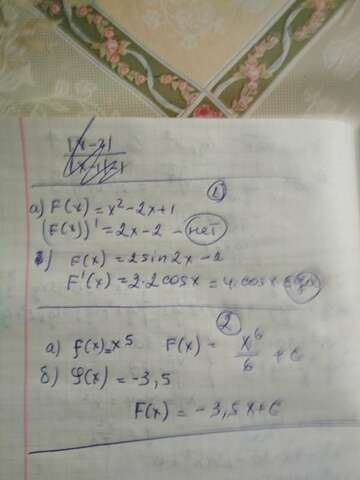 ①
а) F(x) = x² - 2x + 1
(F(x))' = 2x - 2 - нет
б) F(x) = 2 sin 2x - 2
F'(x) = 2·2 cos x = 4·cos x
②
а) f(x) = x⁵ F(x) = x⁶/6 + C
б) φ(x) = -3,5
F(x) = -3,5x + C